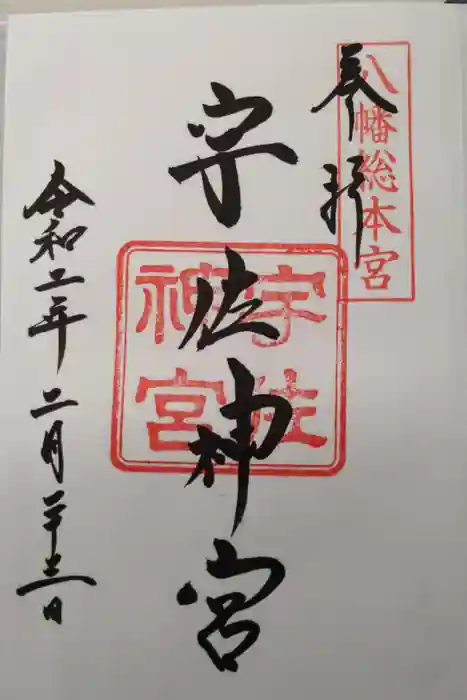 八幡総本宮
奉拝
宇佐神宮
宇佐
神宮
令和二年二月二十三日